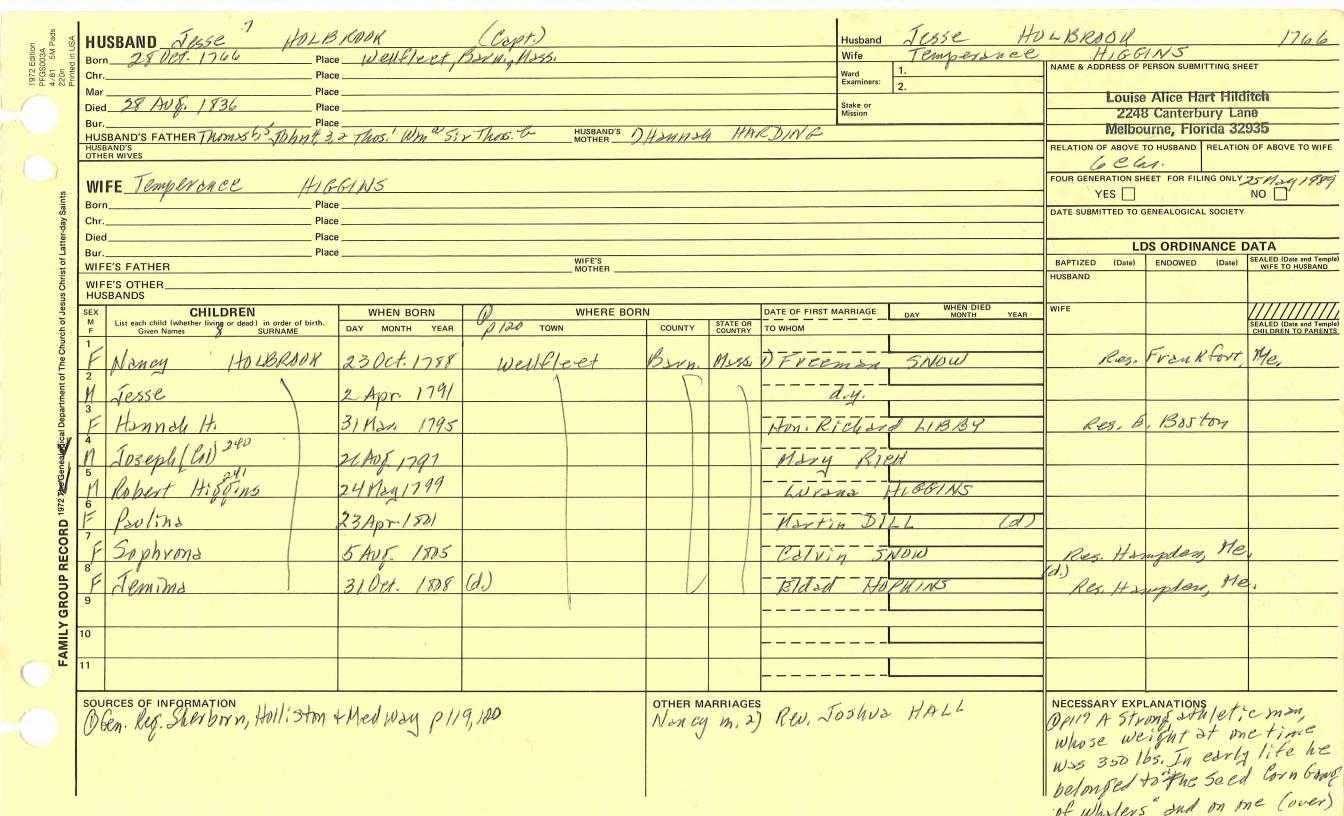 1972 Edition
PFGS003A
4/81 5M Pads
220n
Printed in USA
HUSBAND Jesse 7 HOLBROOK (Capt.)
Born 28 Oct. 1766 Place Wellfleet, Barn., Mass.
Chr. Place
Mar Place
Died 28 Aug. 1836 Place
Bur. Place
HUSBAND'S FATHER Thomas HUSBAND'S MOTHER 1) Hannah HARDING
HUSBAND'S OTHER WIVES
Husband Jesse HOLBROOK 1766
Wife Temperance HIGGINS
Ward Examiners: 1.
2.
Stake or Mission
NAME & ADDRESS OF PERSON SUBMITTING SHEET
Louise Alice Hart Hilditch
2248 Canterbury Lane
Melbourne, Florida 32935
RELATION OF ABOVE TO HUSBAND RELATION OF ABOVE TO WIFE
FOUR GENERATION SHEET FOR FILING ONLY 25 May 1989
YES NO
DATE SUBMITTED TO GENEALOGICAL SOCIETY
WIFE Temperance HIGGINS
Born Place
Chr. Place
Died Place
Bur. Place
WIFE'S FATHER WIFE'S MOTHER
WIFE'S OTHER HUSBANDS
LDS ORDINANCE DATA
BAPTIZED (Date) ENDOWED (Date) SEALED (Date and Temple) WIFE TO HUSBAND
HUSBAND
WIFE
SEALED (Date and Temple) CHILDREN TO PARENTS
SEX M F
CHILDREN
List each child (whether living or dead) in order of birth.
Given Names 8 SURNAME
WHEN BORN
DAY MONTH YEAR
① p 120
WHERE BORN
TOWN COUNTY STATE OR COUNTRY
DATE OF FIRST MARRIAGE
TO WHOM
WHEN DIED
DAY MONTH YEAR
1 F Nancy HOLBROOK 23 Oct. 1788 Wellfleet Barn. Mass. 1) Freeman SNOW Res. Frankfort, Me.
2 M Jesse 2 Apr. 1791 d.y.
3 F Hannah H. 31 Mar. 1795 Hon. Richard LIBBY Res. E. Boston
4 M Joseph (Col) 240 Aug. 1797 Mary RICH
5 M Robert Higgins 241 24 May 1799 Lurana HIGGINS
6 F Paulina 23 Apr. 1801 Martin DILL (d)
7 F Sophrona 5 Aug. 1805 Calvin SNOW Res. Hampden, Me.
8 F Jemima 31 Oct. 1808 (d.) Eldad HOPKINS (d.) Res. Hampden, Me.
9
10
11
FAMILY GROUP RECORD 1972 The Genealogical Department of The Church of Jesus Christ of Latter-day Saints
SOURCES OF INFORMATION
① Gen. Reg. Sherborn, Holliston & Medway p 119, 120
OTHER MARRIAGES
Nancy m. 2) Rev. Joshua HALL
NECESSARY EXPLANATIONS
① p119 A strong, athletic man,
whose weight at one time
was 350 lbs. In early life he
belonged to "the Seed Corn Gang
of Whalers" and on one (over)